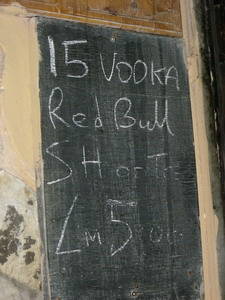 15 VODKA
Red Bull
SHOT
Lm 5